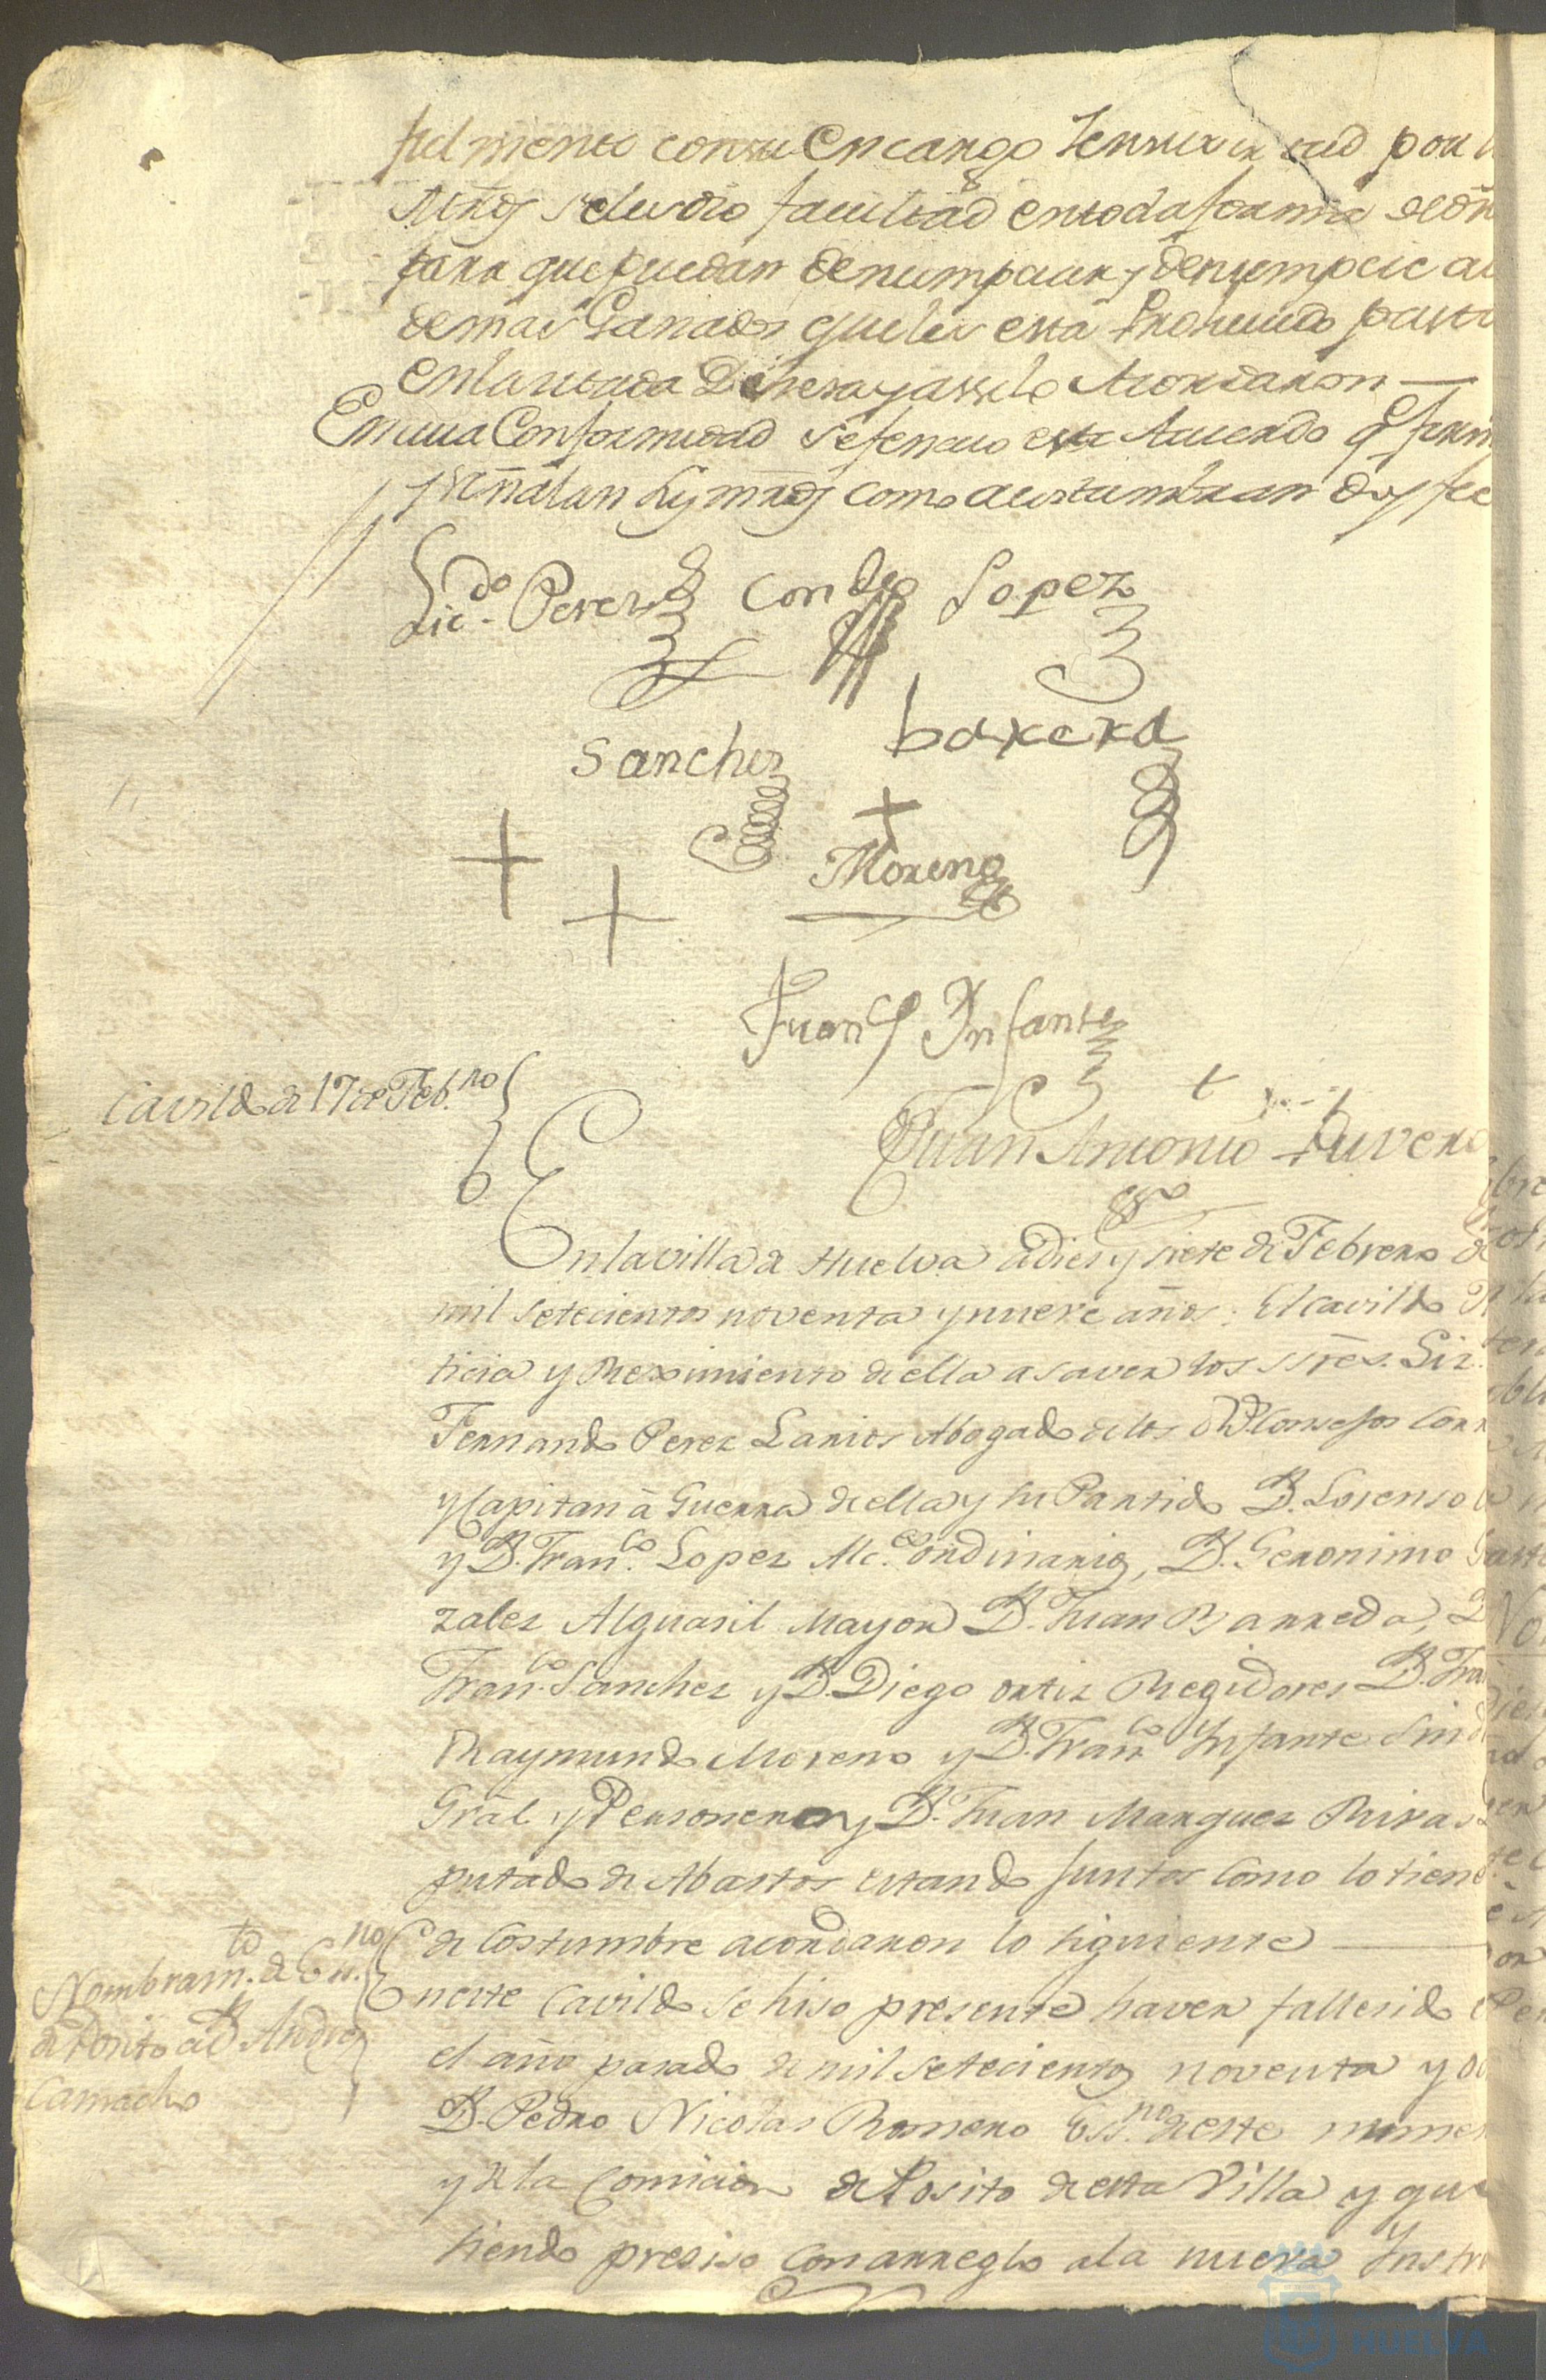 fielmente con su Encargo y en su virtud por
se les dio facultad en toda forma
para que puedan denumpciar y denumpcie
demas Ganados que les esta Prohiuido
en la citada Dehesa y assi lo Acordaron
En cuia Conformidad se fenecio este Acuerdo q.e
y señalan sus mrds como acostumbran doy fee
Lic.do Perez Conde Lopez
Sanchez barera
Moreno
Fran.co Infante
Cavildo de 17 de Feb.ro
Juan Antonio
ess.no
En la villa de Huelva a dies y siete de Febrero de
mil setecientos noventa y nueve años: El cavildo
ticia y Reximiento de ella a saver los ss.res Liz.
Fernando Perez Larios Abogado de los R.s Consejos
y Capitan à Guerra de ella y su Partido D.n Lorenso
y D.n Fran.co Lopez Alc.es ordinarios, D.n Geronimo
zalez Alguasil Mayor D.n Juan Barreda,
Fran.co Sanchez y D.n Diego Ortiz Regidores D.n
Raymundo Moreno y D.n Fran.co Ynfante
Gral y Personero y D.n Juan Marquez Rivas
putado de Abastos estando juntos como lo tienen
de Costumbre acordaron lo siguiente
Nombram.to de Es.no
de Posito a D.n Andres
Camacho
En este Cavildo se hiso presente haver fallesido
el año pasado de mil setecientos noventa y
D.n Pedro Nicolas Romero Ess.no de este
y de la Comicion de Posito de esta Villa y que
siendo presiso con arreglo a la nueva
HUELVA